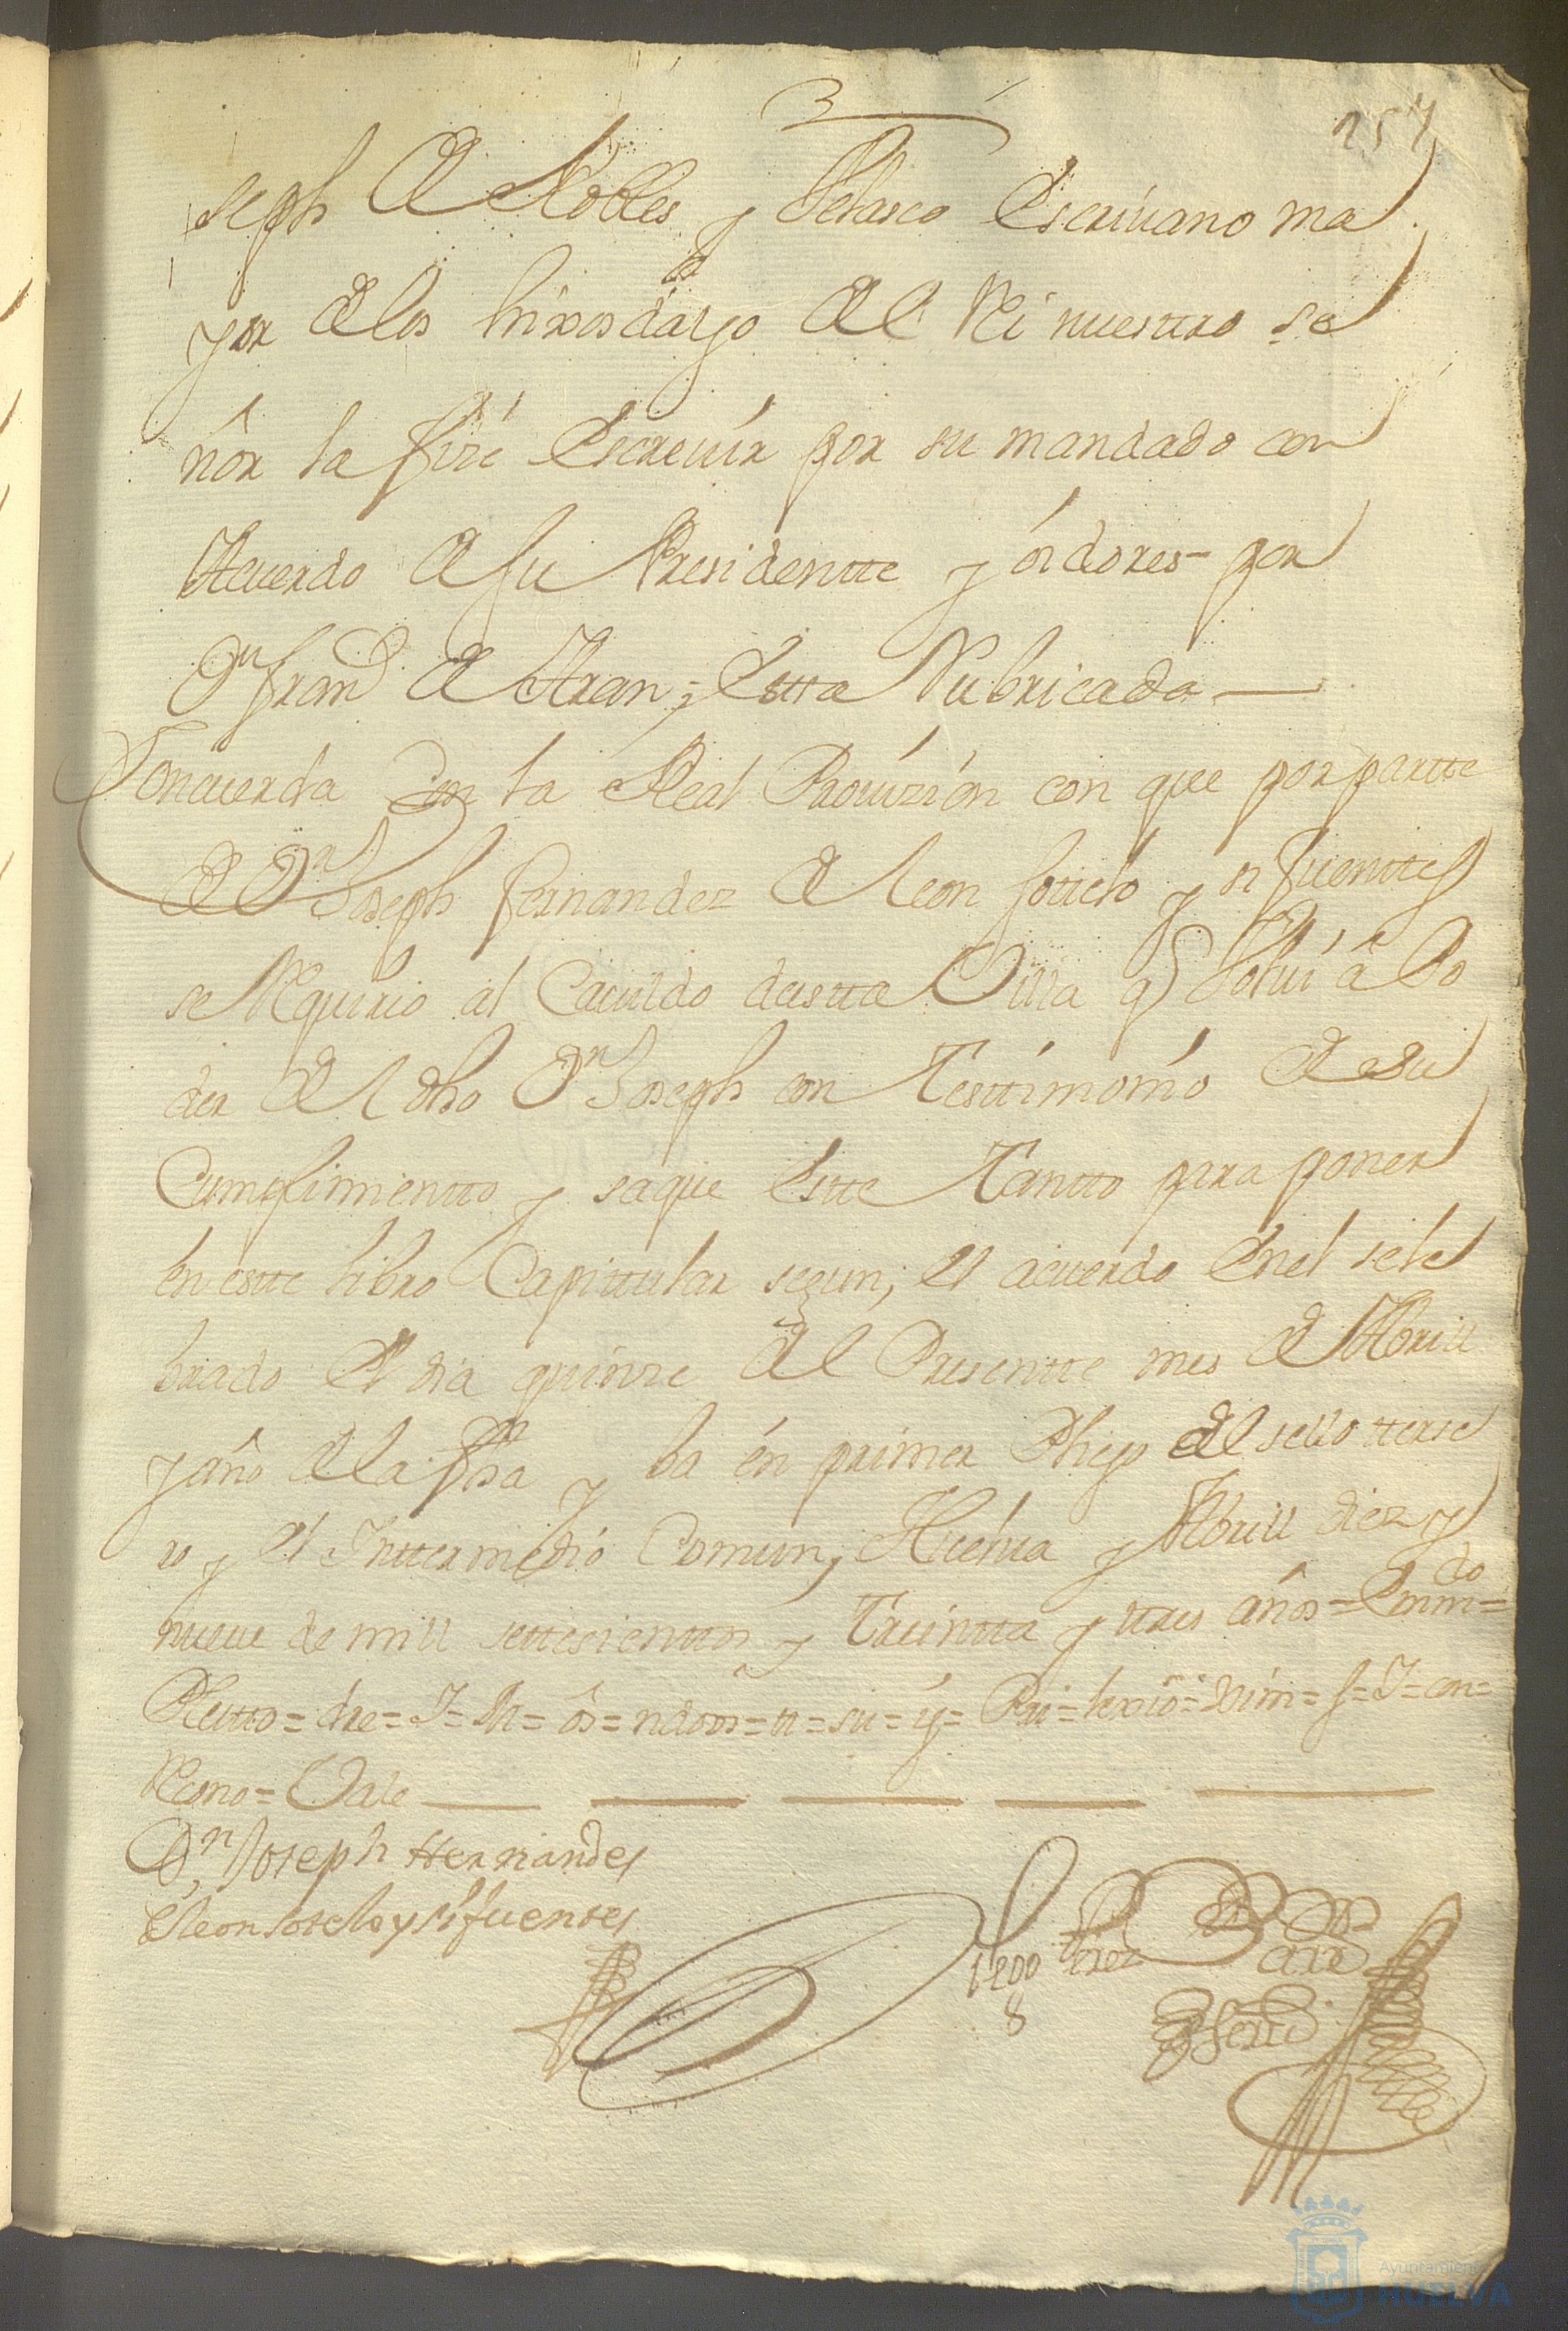 257
seph de Robles y Velasco Escriuano ma
yor de los hixosdalgo del Rei nuestro se
ñor la fize Escreuir por su mandado con
Acuerdo de su Presidentte y oidores por
Dn. Franco de Aran; Estta Rubricada
Concuerda Con la Real Prouizion con que por partte
de Dn. Joseph fernandez de leon sottelo y sifuenttes
se Requirio al Cauildo destta Villa q Volui â Po
der del dho Dn. Joseph con Testtimonio de su
Cumplimientto y saque Estte Tantto para poner
en estte libro Capittular segun, el acuerdo En el sele
brado el dia quinze del Presentte mes de Abrill
y año de la fha y ba en primer Pliego del sello tterse
ro y el Inttermedio Comun, Huelua y Abrill diez y
nueue de mill settesienttos y Treintta y ttres años = Enmdo =
Pleitto = dre = J = = ôs = ndoos = u = su = y = Pri = = = f = J = con =
= Vale
Dn. Joseph Hernandes
de leon sotelo y sifuentes